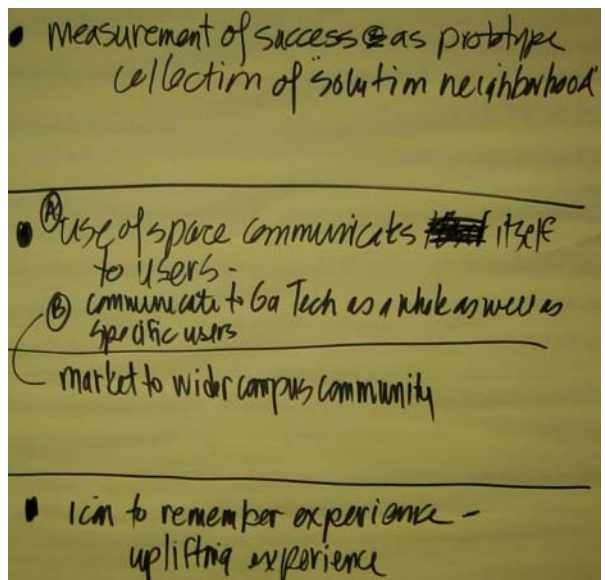 • measurement of success as prototype
collection of "solution neighborhood"
• Ⓐ use of space communicates itself
to users -
Ⓑ communicate to Ga Tech as a whole as well as
specific users
market to wider campus community
• icon to remember experience -
uplifting experience